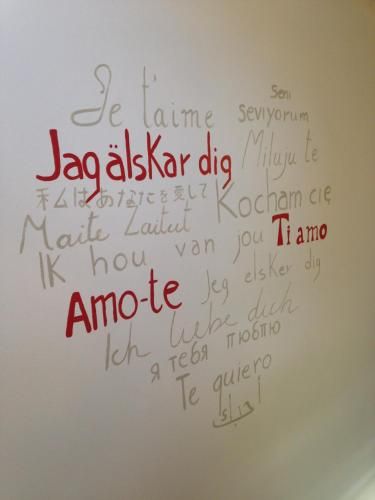 Je t'aime
Seni
seviyorum
Jag älskar dig
Miluju te
私はあなたを愛して
Kocham cię
Maite Zaitut
Ti amo
IK hou van jou
Jeg elsker dig
Amo-te
Ich liebe dich
я тебя люблю
Te quiero